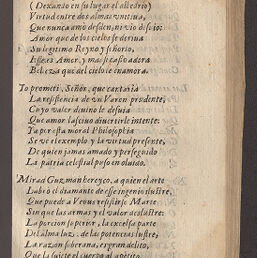 (Dexando en su lugar el aluedrio)
Virtud entre dos almas vnitiua,
Que nunca amò desden, ni viò desuio:
Amor que de los cielos se deriua
Su legitimo Reyno y señorio,
Esse es Amor, y mas si casto adora
Belleza que del cielo se enamora.
Yo prometi, Señor, que cantaria
La resistencia de vn Varon prudente,
Cuyo valor diuino le desuia
Que amor lasciuo diuertirle intente:
Ya por esta moral Philosophia
Se ve el exemplo y la virtud presente,
De quien jamas amado y perseguido
La patria celestial puso en oluido.
Mirad Guzman heroyco, a quien el arte
Labrò el diamante de esse ingenio ilustre,
Que puede a Venus resistirse Marte
Sin que las armas y el valor deslustre:
La porcion superior, la excelsa parte
Del alma luz, de las potencias lustre,
La razon soberana, es gran delito,
Que la sujete el cuerpo al apetito.